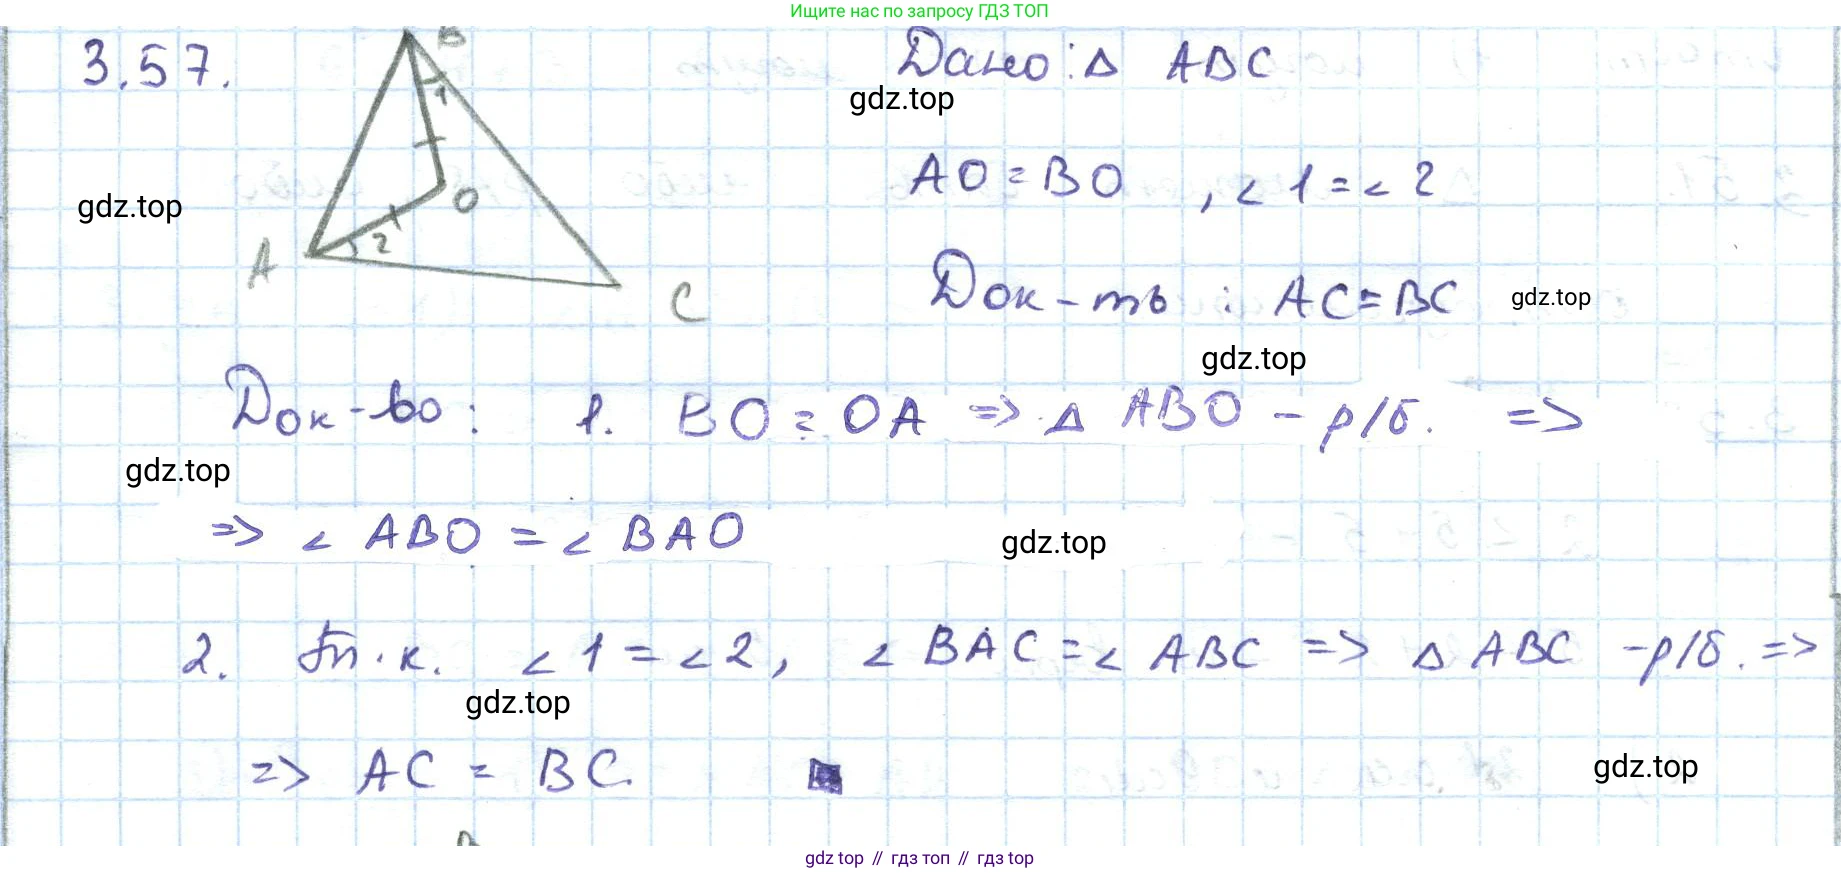 Ищите нас по запросу ГДЗ ТОП
3.57.
B
1
O
2
A
C
Дано: Δ ABC
gdz.top
AO = BO , ∠1 = ∠2
gdz.top
Док-ть : AC = BC
gdz.top
gdz.top
Док-во: 1. BO = OA => Δ ABO - р/б. =>
gdz.top
=> ∠ ABO = ∠ BAO
gdz.top
2. Т.к. ∠1 = ∠2, ∠ BAC = ∠ ABC => Δ ABC - р/б. =>
gdz.top
=> AC = BC.
gdz.top
gdz top // гдз топ // гдз top